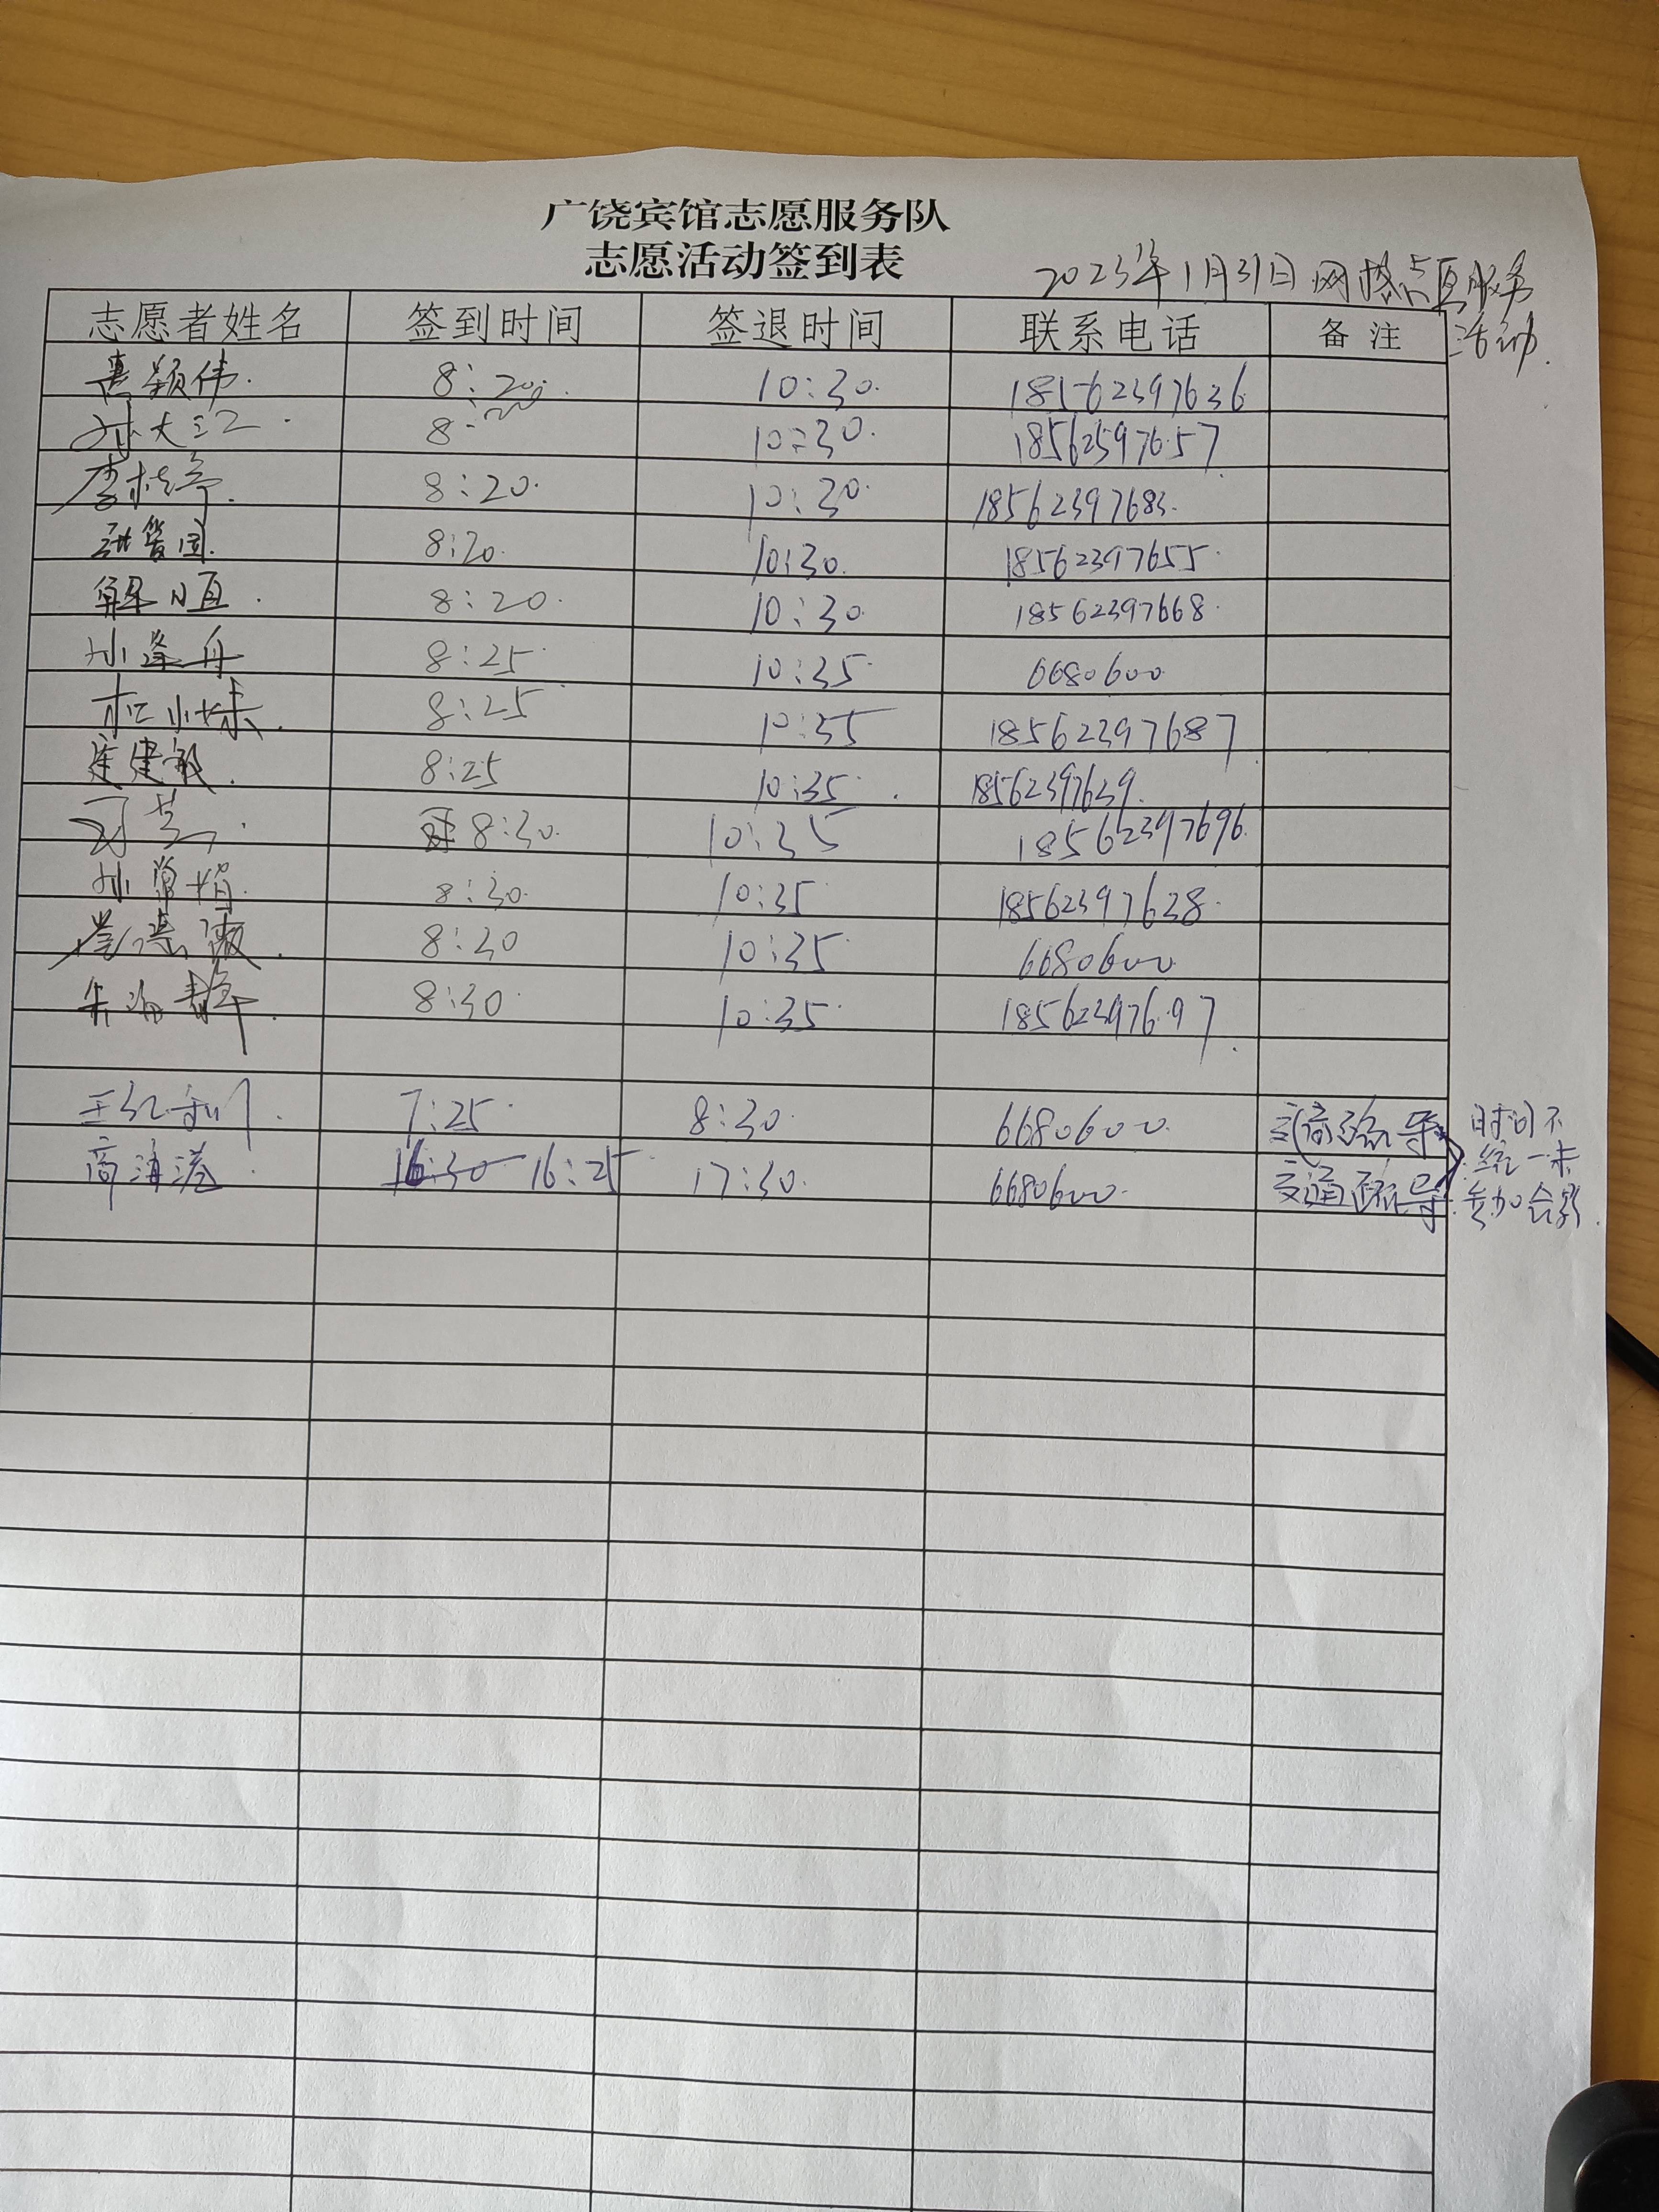 广饶宾馆志愿服务队
志愿活动签到表
2023年1月31日网格点位服务
活动.
志愿者姓名 签到时间 签退时间 联系电话 备注
颖伟. 8:20. 10:30. 18562397636
大江. 8:20 10:30. 18562397657
李 8:20. 10:30. 18562397683.
8:20. 10:30. 18562397655.
解恒. 8:20. 10:30 18562397668.
孙逢舟 8:25. 10:35. 6680600
小妹. 8:25 10:35 18562397687
崔建敏. 8:25 10:35. 18562397639.
8:30. 10:35 18562397696
孙常娟. 8:30. 10:35 18562397638.
8:30 10:35. 6680600
朱海静. 8:30. 10:35. 18562397697.
王红利. 7:25. 8:30. 6680600. 交通疏导 时间不
商海港. 16:30 16:25. 17:30. 6680600. 交通疏导 统一未
参加合影.